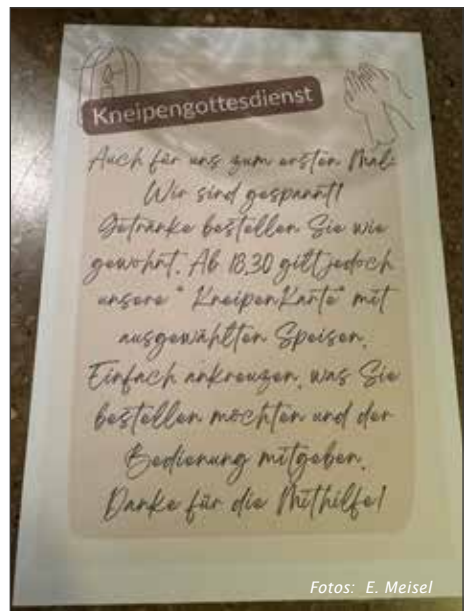 Kneipengottesdienst
Auch für uns zum ersten Mal:
Wir sind gespannt!
Getränke bestellen Sie wie
gewohnt. Ab 18.30 gilt jedoch
unsere "KneipenKarte" mit
ausgewählten Speisen.
Einfach ankreuzen, was Sie
bestellen möchten und der
Bedienung mitgeben.
Danke für die Mithilfe!
Fotos: E. Meisel